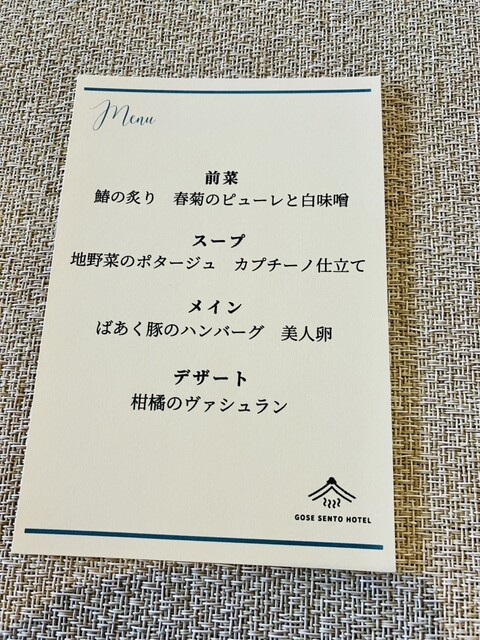 Menu
前菜
鰆の炙り　春菊のピューレと白味噌
スープ
地野菜のポタージュ　カプチーノ仕立て
メイン
ばあく豚のハンバーグ　美人卵
デザート
柑橘のヴァシュラン
GOSE SENTO HOTEL